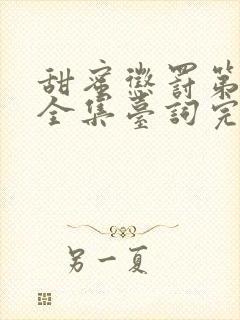 甜蜜懲罰第
全集臺詞完
另一夏